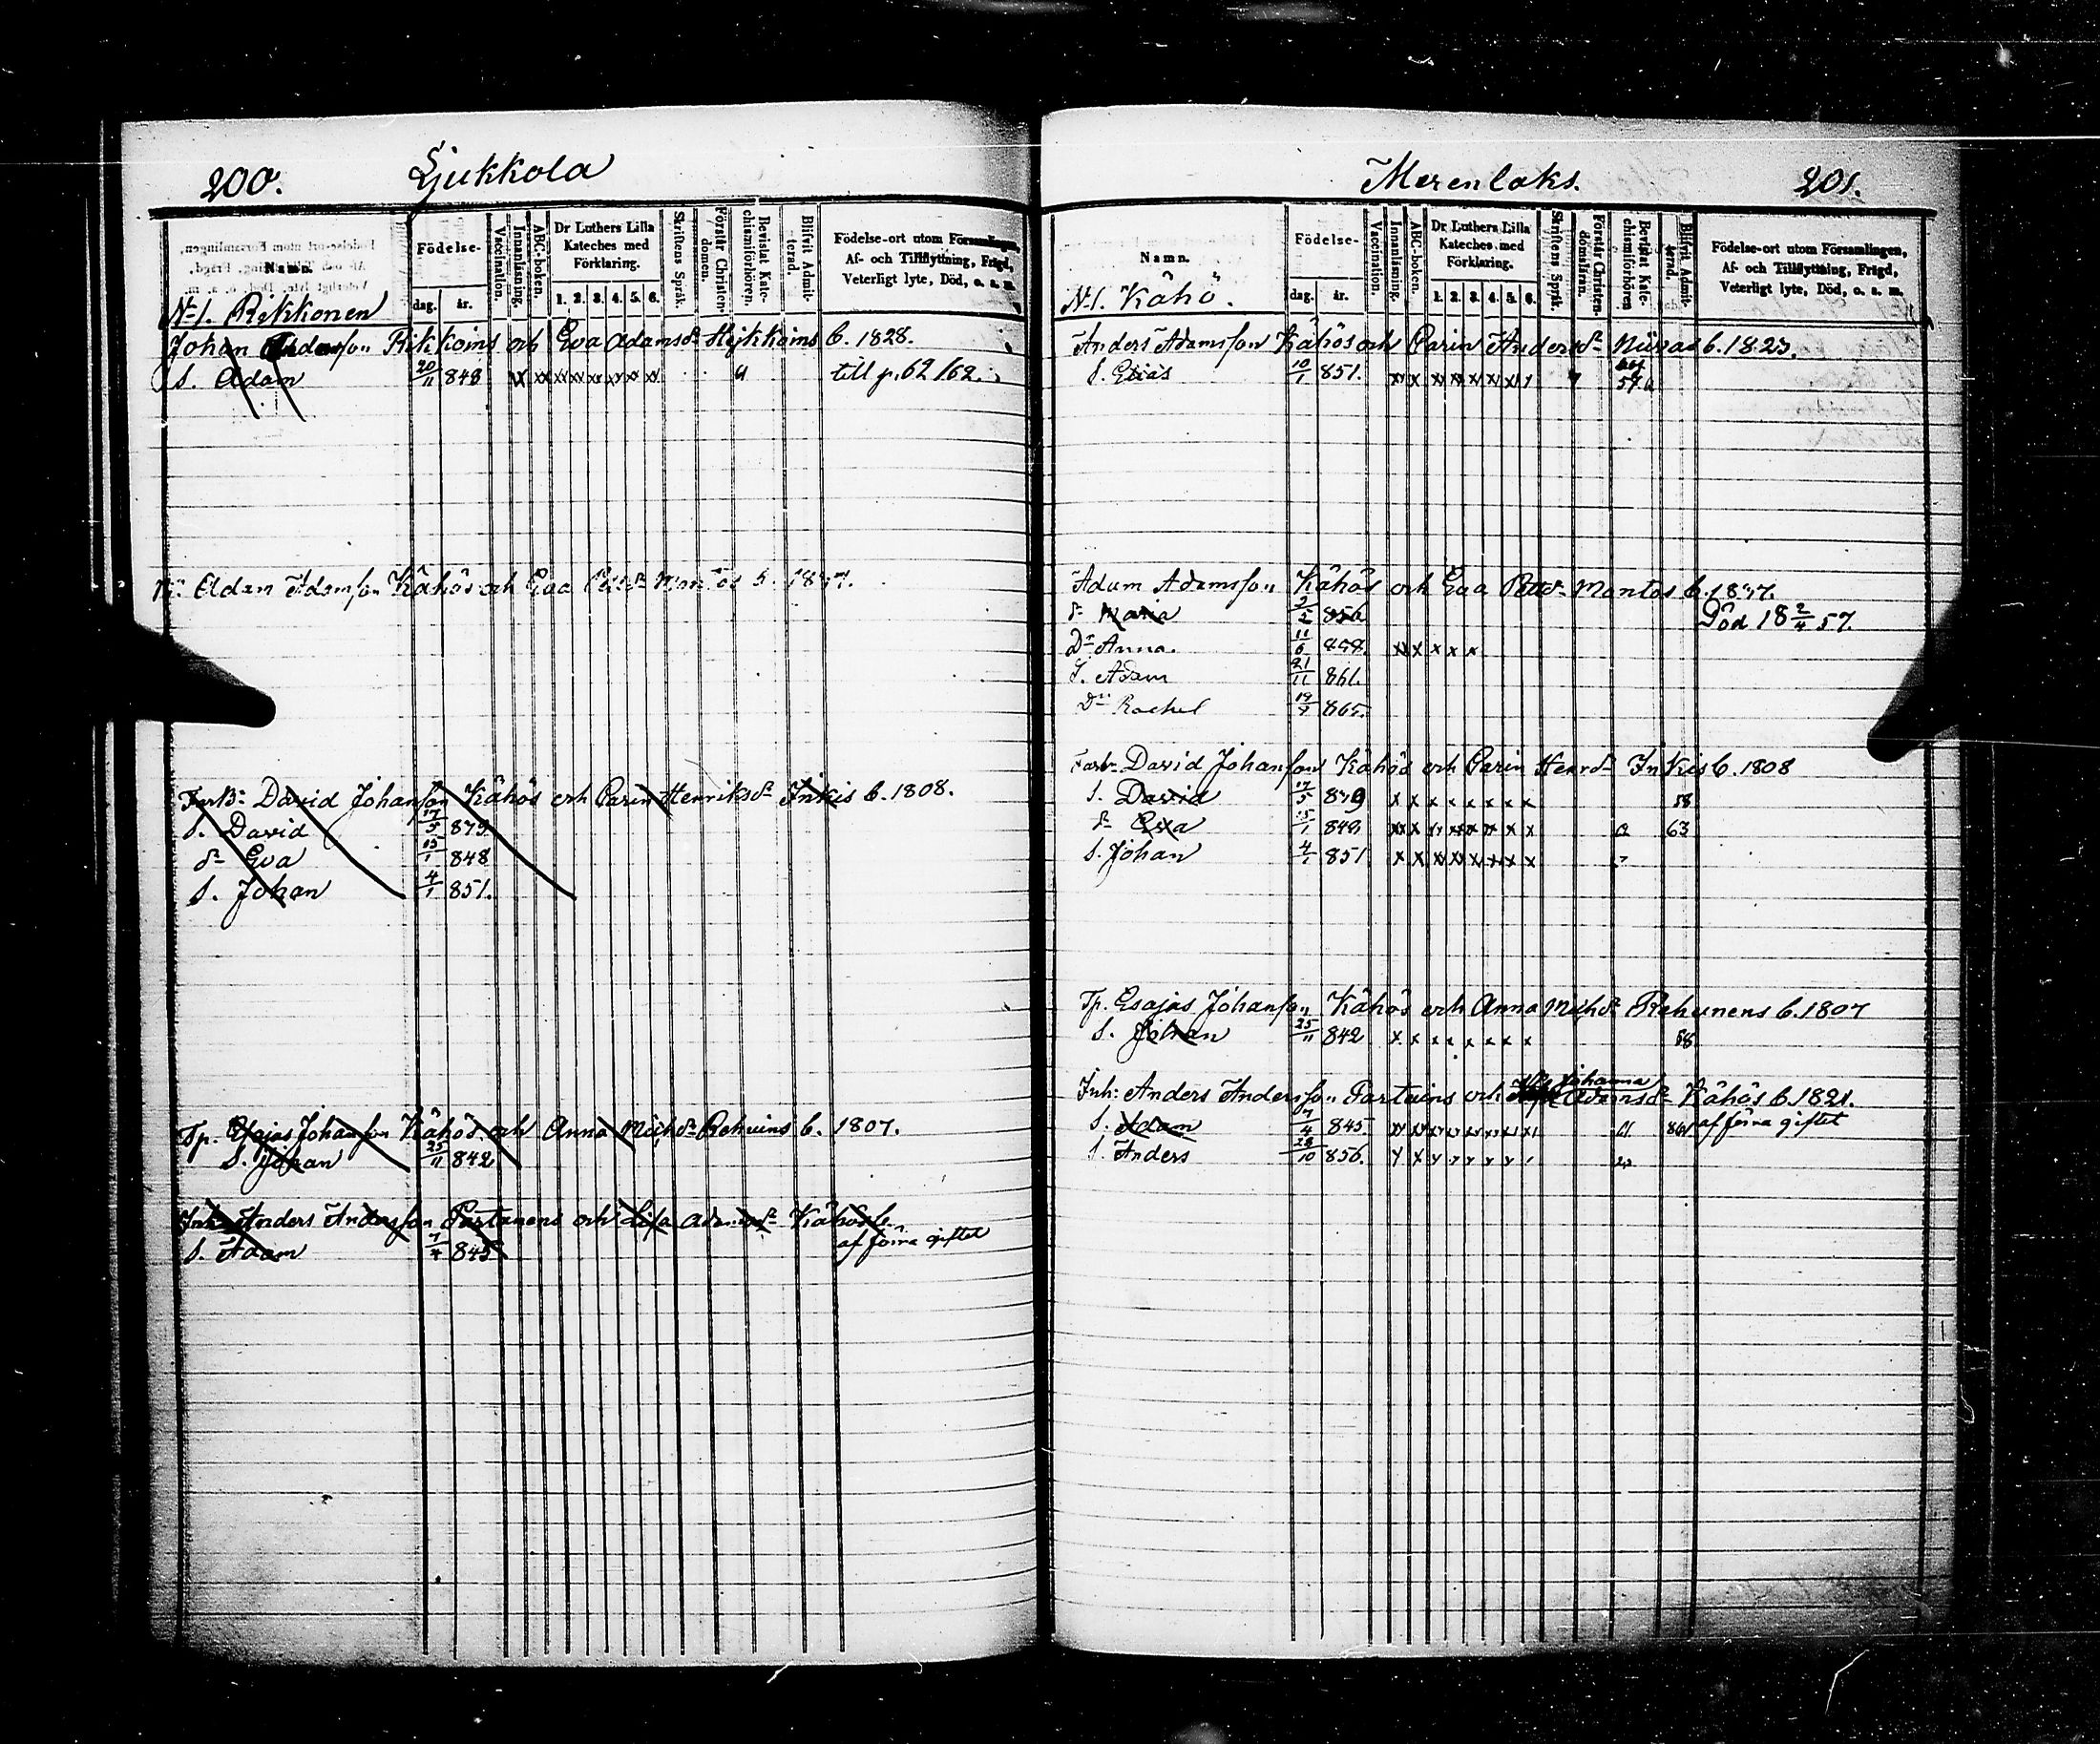 200. Sjukkola
Namn.
Födelse-
dag. år.
Vaccination.
Innanläsning.
ABC-boken.
Dr Luthers Lilla Kateches med Förklaring.
1. 2. 3. 4. 5. 6.
Skriftens Språk.
Förstår Christendomen.
Bevistat Katechismiförhören.
Blifvit Admitterad.
Födelse-ort utom Församlingen,
Af- och Tillflyttning, Frägd,
Veterligt lyte, Död, o. s. m.
N:1. Rikkonen
Johan Rikkoins och Eva Adamsd:r Hykkoins b. 1828.
S. Adam 20/11 848 till p. 62/62.
Adam Adamsson Kähös och Eva b. 1837.
Farb: David Johansson Kähös och Carin Henriksd:r Inkis b. 1808.
S. David 17/5 879
d:r Eva 15/1 848
S. Johan 4/1 851.
Tp. Esajas Johansson Kähös och Anna Michd:r Rehuins b. 1807.
S. Johan 25/11 842
Inh: Anders Andersson Partanens och Lisa Adamsd:r Kähös b.
S. Adam 7/4 845 af förra giftet
Merenlaks. 201.
Namn.
Födelse-
dag. år.
Vaccination.
Innanläsning.
ABC-boken.
Dr Luthers Lilla Kateches med Förklaring.
1. 2. 3. 4. 5. 6.
Skriftens Språk.
Förstår Christendomsläran.
Bevistat Katechismiförhören
Blifvit Admitterad.
Födelse-ort utom Församlingen,
Af- och Tillflyttning, Frägd,
Veterligt lyte, Död, o. s. m.
N:1. Kähö.
Anders Adamsson Kähös och Carin Andersd:r b. 1823.
S. Elias 10/1 851.
Adam Adamsson Kähös och Eva Petterd:r Mantos b. 1837.
d:r Maria 2/2 856 Död 18 2/4 57.
D:r Anna 11/6 858
S. Adam 21/11 861.
D:r Rachel 865.
Farb: David Johansson Kähös och Carin Henrd:r Inkis b. 1808
S. David 17/5 839 x x x x x x x x 58
d:r Eva 15/1 848 63
S. Johan 4/1 851
Tp. Esajas Johansson Kähös och Anna Michd:r Rehunens b. 1807
S. Johan 25/11 842 x x x x x x x x 58
Inh: Anders Andersson Partains och Johanna Adamsd:r Kähös b. 1821.
S. Adam 7/4 845. 864 af förra giftet
S. Anders 28/10 856.